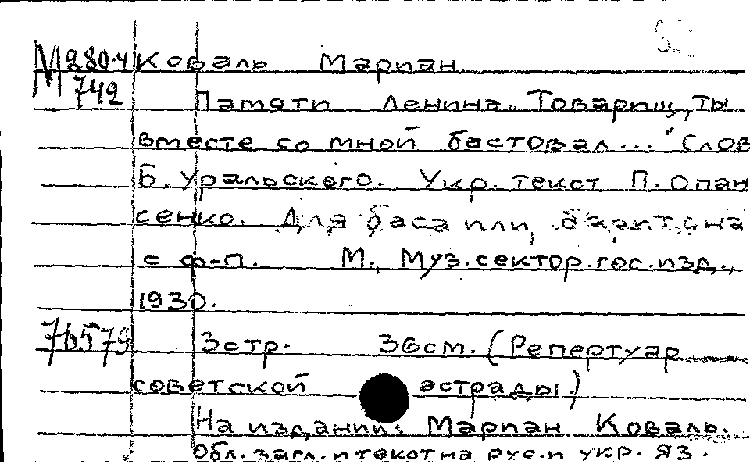 М280.4 Коваль Мариан.
742
Памяти Ленина. "Товарищ, ты
вместе со мной бастовал..." Слов
Б. Уральского. Укр. текст П. Опан
сенко. Для баса или баритона
с ф-п. М., Муз. сектор гос. изд.,
1930.
76579 3стр. 36см. (Репертуар
советской эстрады.)
На издании: Мариан Коваль.
Обл., загл. и текст на рус. и укр. яз.